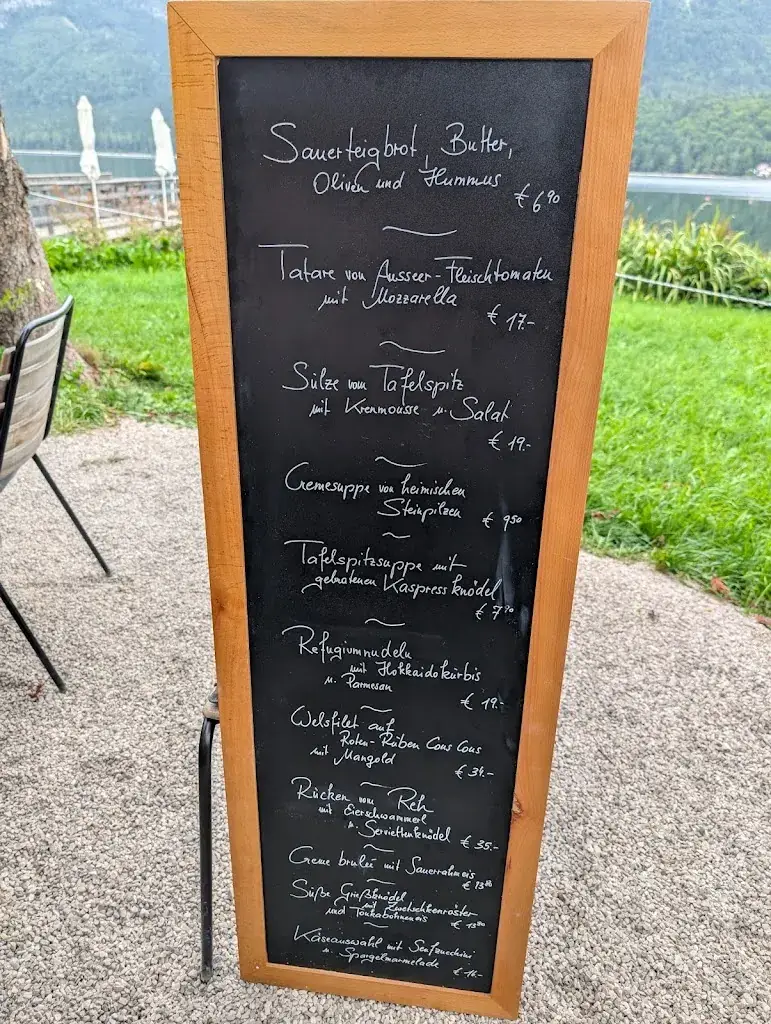 Sauerteigbrot, Butter,
Oliven und Hummus
€ 6⁹⁰
Tatare von Ausseer-Fleischtomaten
mit Mozzarella
€ 17.-
Sülze vom Tafelspitz
mit Krenmousse u. Salat
€ 19.-
Cremesuppe von heimischen
Steinpilzen
€ 9⁵⁰
Tafelspitzsuppe mit
gebratenen Kaspressknödel
€ 7⁹⁰
Refugiumnudeln
mit Hokkaidokürbis
u. Parmesan
€ 19.-
Welsfilet auf
Roten-Rüben Cous Cous
mit Mangold
€ 34.-
Rücken vom Reh
mit Eierschwammerl
u. Serviettenknödel
€ 35.-
Creme brulee mit Sauerrahmeis
€ 13⁸⁰
Süße Grießknödel
mit Zwetschkenröster
und Tonkabohneneis
€ 13⁸⁰
Käseauswahl mit Senfzucchini
u. Spargelmarmelade